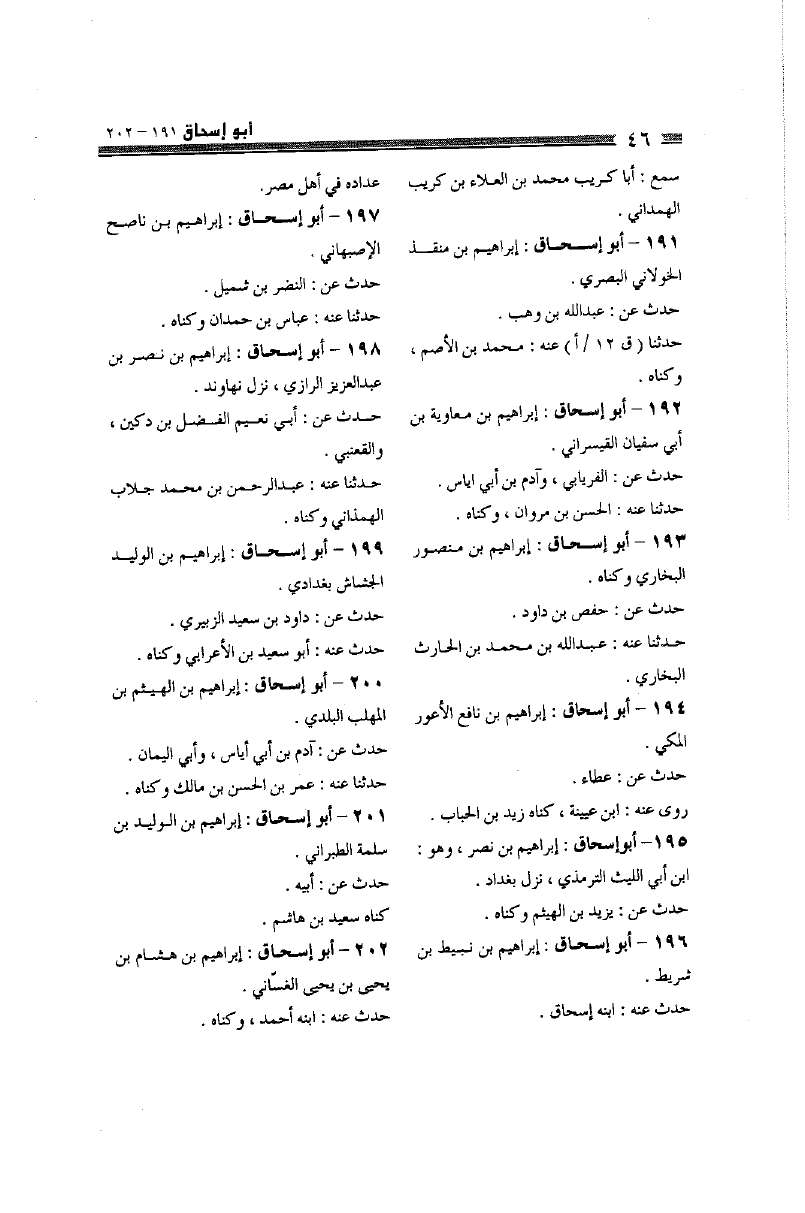 ٤٦
أبو إسحاق ١٩١ – ٢٠٢
سمع : أبا كريب محمد بن العلاء بن كريب
الهمداني .
١٩١ – أبو إسحاق : إبراهيم بن منقذ
الخولاني البصري .
حدث عن : عبدالله بن وهب .
حدثنا ( ق ١٢ / أ ) عنه : محمد بن الأصم ،
وكناه .
١٩٢ – أبو إسحاق : إبراهيم بن معاوية بن
أبي سفيان القيسراني .
حدث عن : الفريابي ، وآدم بن أبي اياس .
حدثنا عنه : الحسن بن مروان ، وكناه .
١٩٣ – أبو إسحاق : إبراهيم بن منصور
البخاري وكناه .
حدث عن : حفص بن داود .
حدثنا عنه : عبدالله بن محمد بن الحارث
البخاري .
١٩٤ – أبو إسحاق : إبراهيم بن نافع الأعور
المكي .
حدث عن : عطاء .
روى عنه : ابن عيينة ، كناه زيد بن الحباب .
١٩٥– أبوإسحاق : إبراهيم بن نصر ، وهو :
ابن أبي الليث الترمذي ، نزل بغداد .
حدث عن : يزيد بن الهيثم وكناه .
١٩٦ – أبو إسحاق : إبراهيم بن نبيط بن
شريط .
حدث عنه : ابنه إسحاق .
عداده في أهل مصر.
١٩٧ – أبو إسحاق : إبراهيم بن ناصح
الإصبهاني .
حدث عن : النضر بن شميل .
حدثنا عنه : عباس بن حمدان وكناه .
١٩٨ – أبو إسحاق : إبراهيم بن نصر بن
عبدالعزيز الرازي ، نزل نهاوند .
حدث عن : أبي نعيم الفضل بن دكين ،
والقعنبي .
حدثنا عنه : عبدالرحمن بن محمد جلاب
الهمذاني وكناه .
١٩٩ – أبو إسحاق : إبراهيم بن الوليد
الجشاش بغدادي .
حدث عن : داود بن سعيد الزبيري .
حدث عنه : أبو سعيد بن الأعرابي وكناه .
٢٠٠ – أبو إسحاق : إبراهيم بن الهيثم بن
المهلب البلدي .
حدث عن : آدم بن أبي أياس ، وأبي اليمان .
حدثنا عنه : عمر بن الحسن بن مالك وكناه .
٢٠١ – أبو إسحاق : إبراهيم بن الوليد بن
سلمة الطبراني .
حدث عن : أبيه .
كناه سعيد بن هاشم .
٢٠٢ – أبو إسحاق : إبراهيم بن هشام بن
يحيى بن يحيى الغسّاني .
حدث عنه : ابنه أحمد ، وكناه .